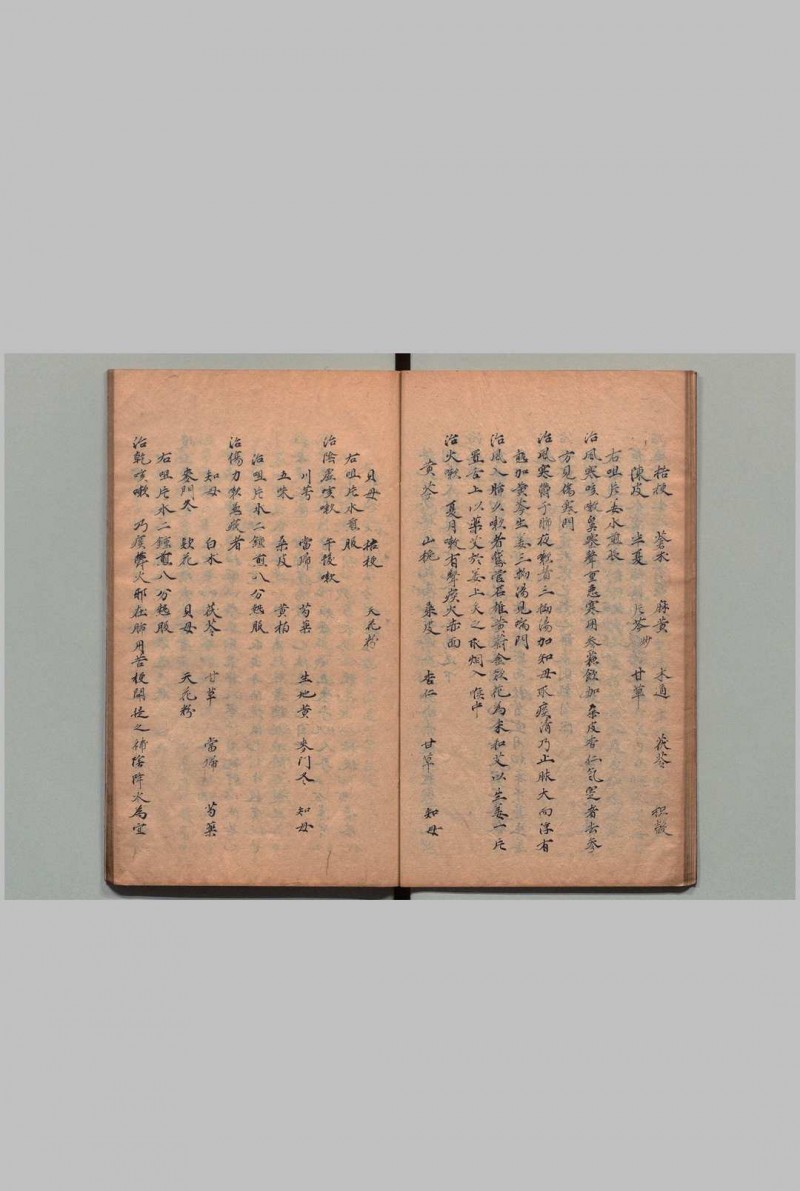 桔梗 蒼朮 麻黄 木通 茯苓 枳殼
陳皮 半夏 片芩炒 甘草
右咀片去水煎服
治風寒咳嗽鼻塞聲重惡寒用參蘇飲加桑皮杏仁氣空者去參
方見傷寒門
治風寒鬱于肺夜嗽者三拗湯加知母 痰清乃止脉大而浮有
熱加黄芩生姜三拗湯見喘門
治風入肺久嗽者鵞管石雄黄 金款花為末和艾以生姜一片
置舌上以藥艾於姜上灸之 烟入喉中
治火嗽 夏月嗽有聲痰火赤面
黄芩 山梔 桑皮 杏仁 甘草 知母
貝母 桔梗 天花粉
右咀片水煎服
治陰虚咳嗽 午後嗽
川芎 當歸 芍藥 生地黄 麥門冬 知母
五味 桑皮 黄柏
治咀片水二鍾煎八分熱服
治傷力 者
知母 白术 茯苓 甘草 當歸 芍藥
麥門冬 款花 貝母 天花粉
右咀片水二鍾煎八分熱服
治乾咳嗽 乃 火邪在肺用苦梗開 之補陰降火為宜